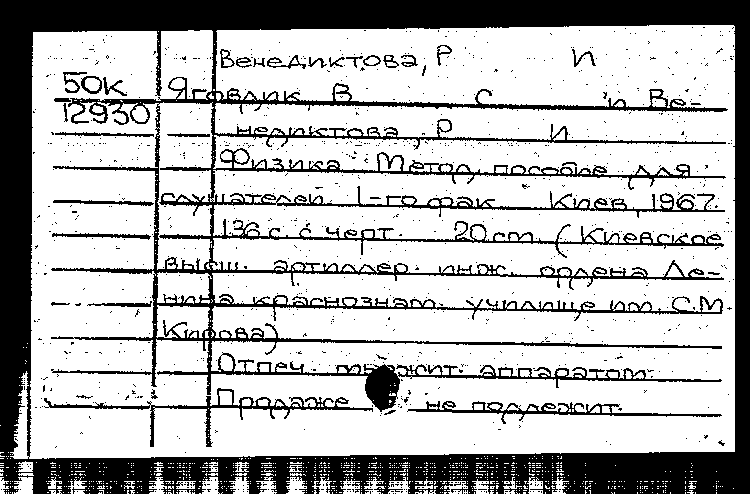 Венедиктова, Р И
50К
12930
Яговдик, В С и Ве-
недиктова, Р И
Физика Метод, пособие для
слушателей 1-го фак. Киев, 1967.
136 с. с черт. 20 cm. (Киевское
высш. артиллер. инж. ордена Ле-
нина краснознам. училище им. С.М.
Кирова)
Отпеч. множит. аппаратом.
Продаже не подлежит.